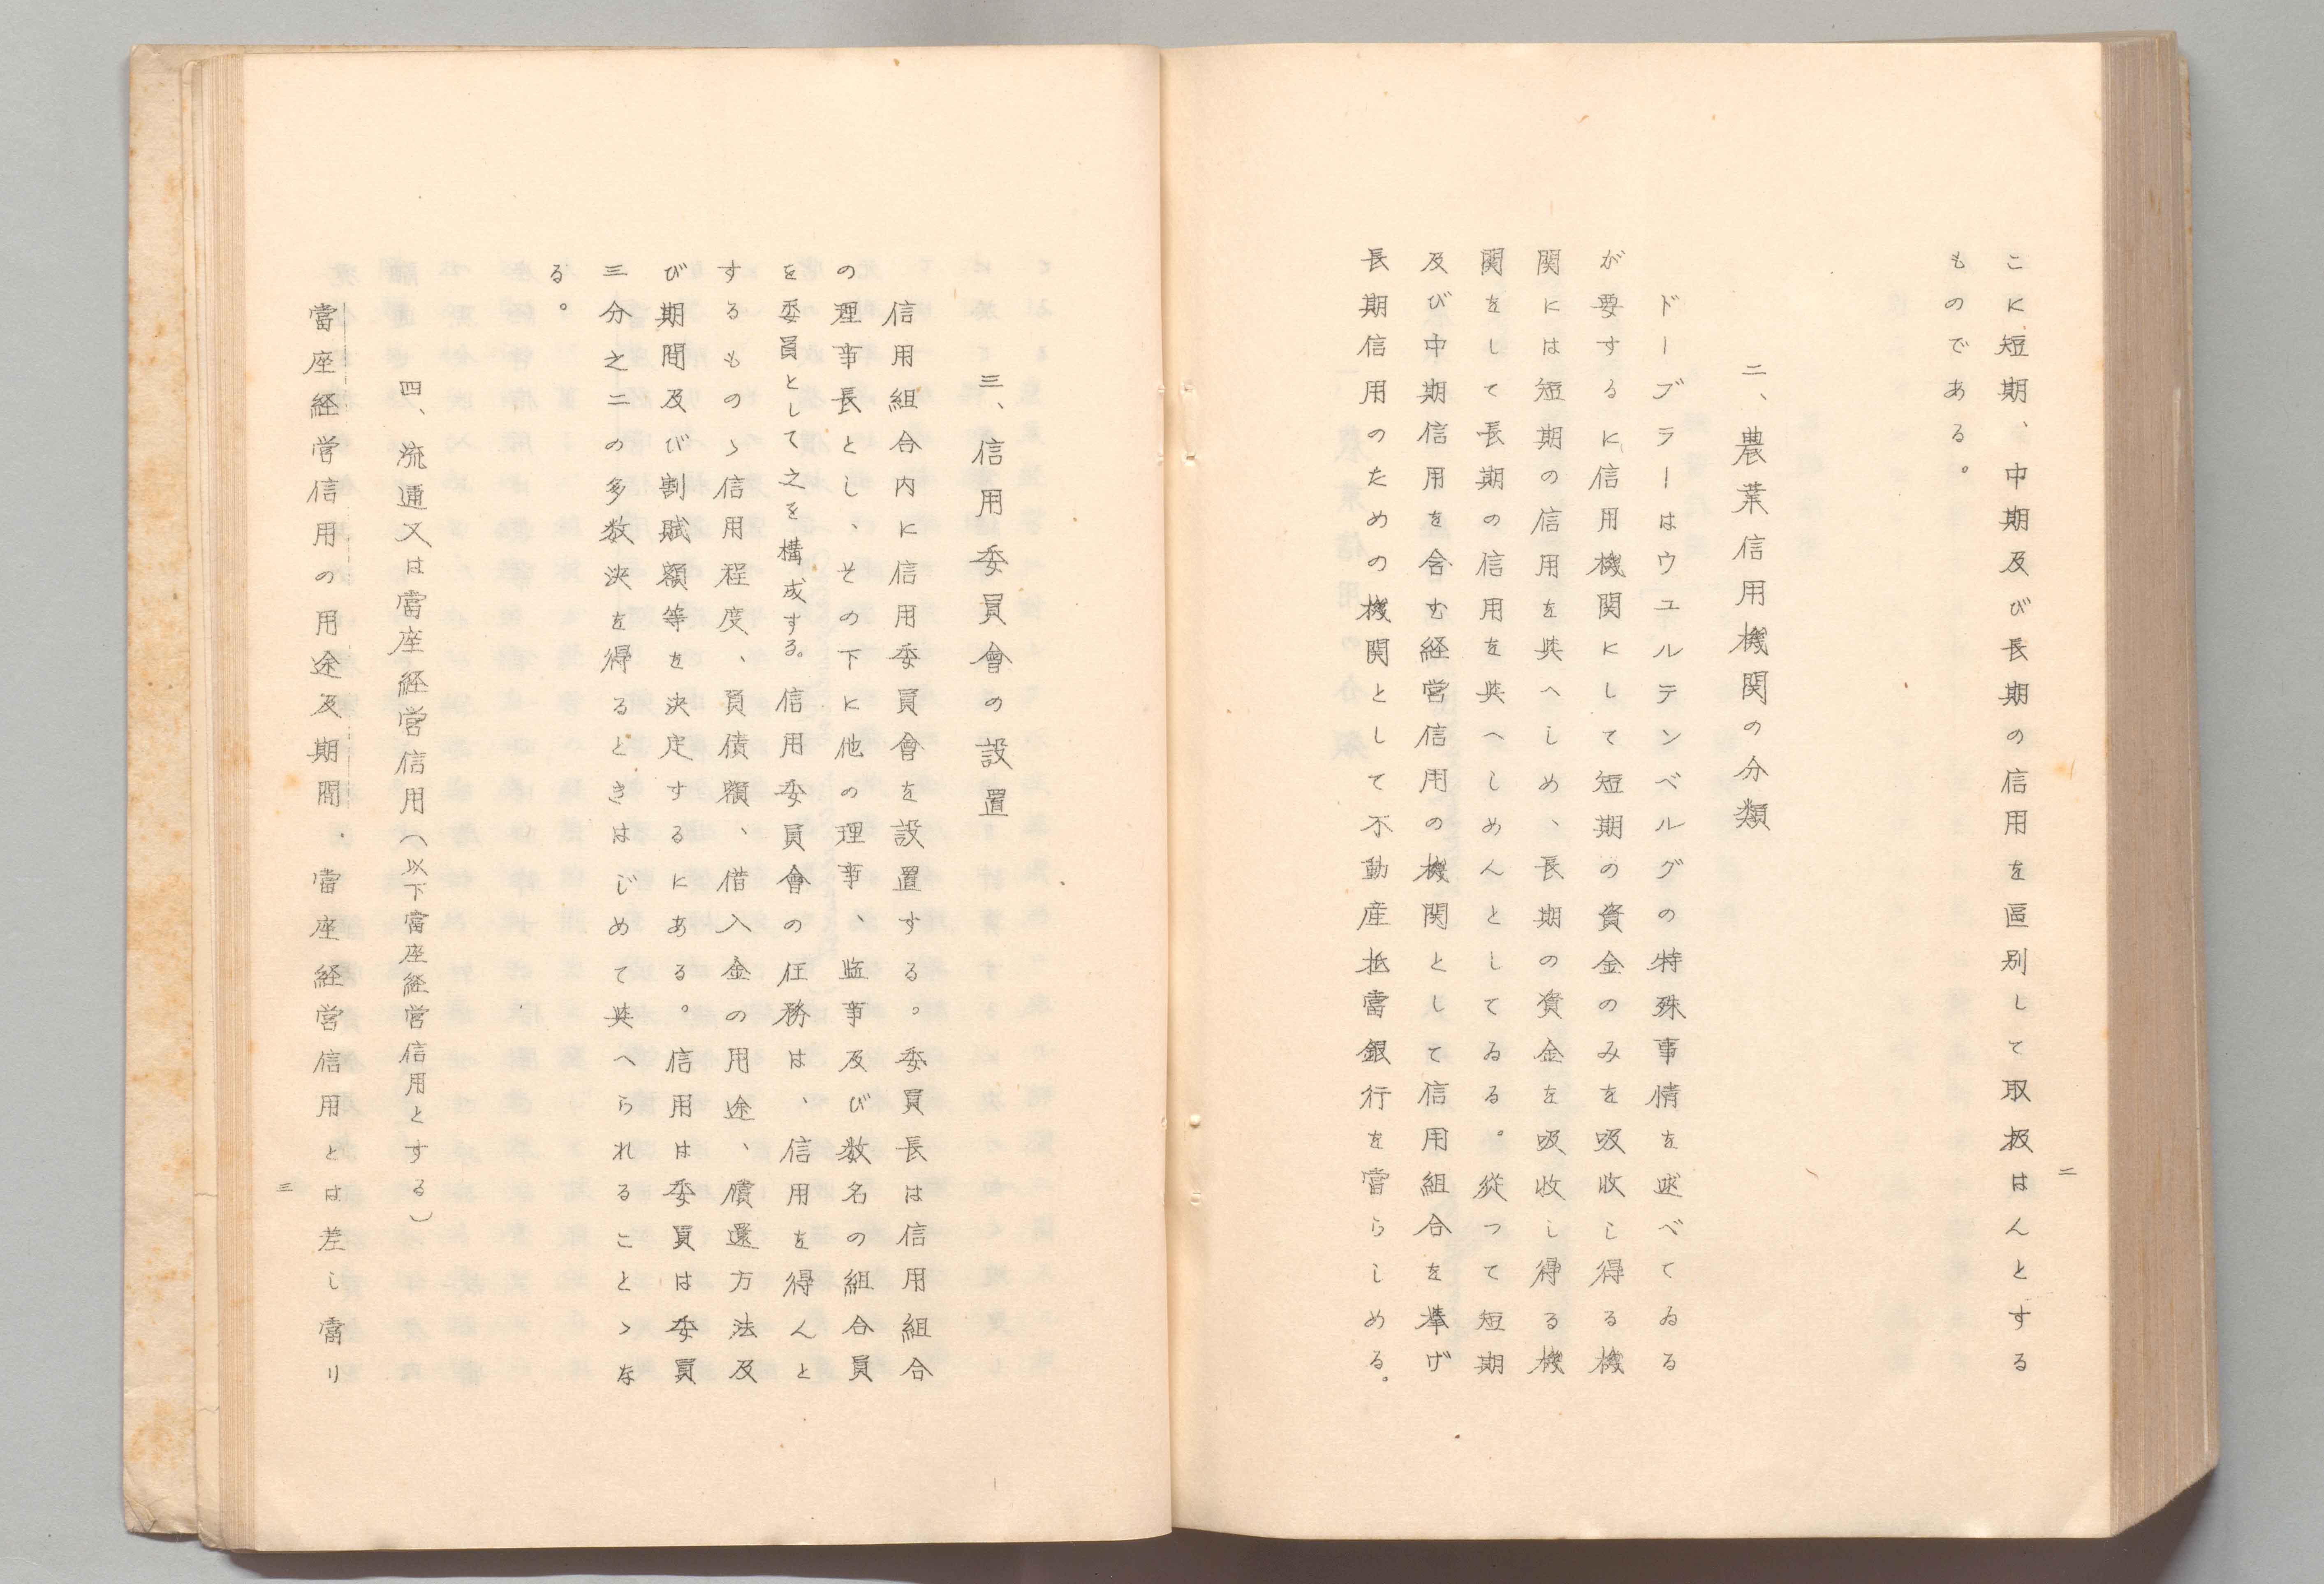 二
こに短期、中期及び長期の信用を區別して取扱はんとする
ものである。
二、農業信用機関の分類
ドーブラーはウユルテンベルグの特殊事情を述べてゐる
が要するに信用機関にして短期の資金のみを吸收し得る機
関には短期の信用を與へしめ、長期の資金を吸收し得る機
関をして長期の信用を與へしめんとしてゐる。従つて短期
及び中期信用を含む経営信用の機関として信用組合を挙げ
長期信用のための機関として不動産抵當銀行を當らしめる。
三、信用委員會の設置
信用組合内に信用委員會を設置する。委員長は信用組合
の理事長とし、その下に他の理事、監事及び数名の組合員
を委員として之を構成する。信用委員會の任務は、信用を得んと
するものゝ信用程度、負債額、借入金の用途、償還方法及
び期間及び割賦額等を決定するにある。信用は委員は委員
三分之二の多数決を得るときはじめて與へられることゝな
る。
四、流通又は當座経営信用（以下當座経営信用とする）
當座経営信用の用途及期間．當座経営信用とは差し當り
三